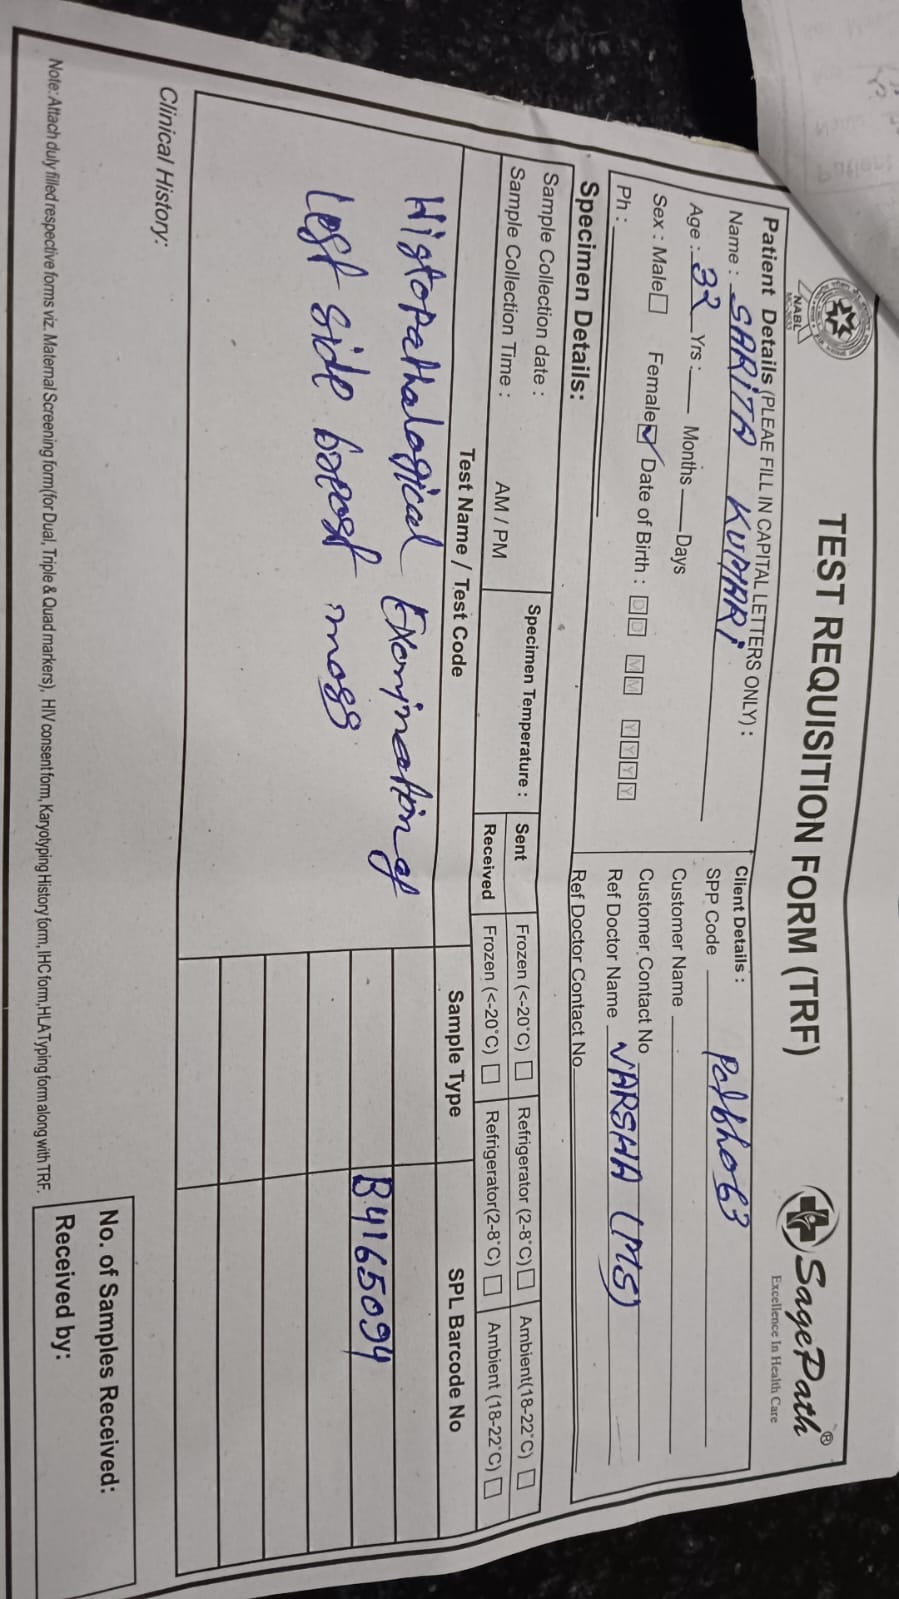 TEST REQUISITION FORM (TRF)
NABL
SagePath®
Excellence In Health Care
Patient Details (PLEAE FILL IN CAPITAL LETTERS ONLY) :
Name : SARITA KUMARI
Age : 32 Yrs : Months Days
Sex : Male Female ✓ Date of Birth : D D M M Y Y Y Y
Ph :
Client Details :
SPP Code
Customer Name
Customer Contact No
Ref Doctor Name VARSHA (MS)
Ref Doctor Contact No
Specimen Details:
Sample Collection date :
Sample Collection Time : AM / PM
Specimen Temperature :
Sent Frozen (<-20°C) Refrigerator (2-8°C) Ambient(18-22°C)
Received Frozen (<-20°C) Refrigerator(2-8°C) Ambient (18-22°C)
Test Name / Test Code Sample Type SPL Barcode No
Histopathalogical Examination of
Left side breast mass
B4165094
Clinical History:
No. of Samples Received:
Received by:
Note: Attach duly filled respective forms viz. Maternal Screening form(for Dual, Triple & Quad markers), HIV consent form, Karyotyping History form, IHC form,HLA Typing form along with TRF.